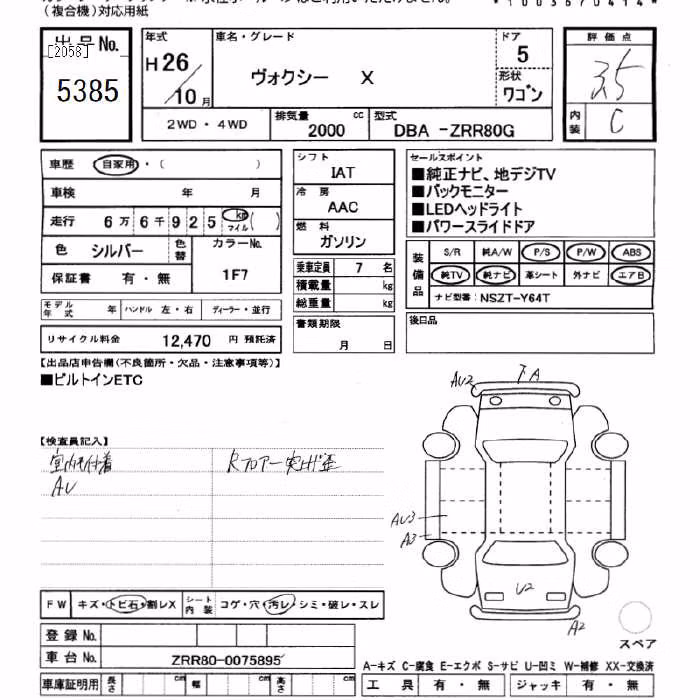 (複合機)対応用紙
*1003670414*
出品No.
[2058]
5385
年式
H26/10月
車名・グレード
ヴォクシー X
ドア
5
形状
ワゴン
評価点
3.5
内装
C
2WD・4WD
排気量
2000 cc
型式
DBA -ZRR80G
車歴 自家用・( )
車検 年 月
走行 6万6千925 km マイル ( )
色 シルバー 色替
カラーNo.
1F7
保証書 有・無
モデル年式 年 ハンドル 左・右 ディーラー・並行
リサイクル料金 12,470 円 預託済
シフト
IAT
冷房
AAC
燃料
ガソリン
乗車定員 7 名
積載量 kg
総重量 kg
書類期限
月 日
セールスポイント
■純正ナビ、地デジTV
■バックモニター
■LEDヘッドライト
■パワースライドドア
装備品
S/R 純A/W P/S P/W ABS
純TV 純ナビ 革シート 外ナビ エアB
ナビ型番: NSZT-Y64T
後日品
【出品店申告欄(不良箇所・欠品・注意事項等)】
■ビルトインETC
【検査員記入】
室内 付着
AU
Rフロアー突上げ歪
AU2
下A
AU3
A3
U2
A2
スペア
FW キズ・トビ石・割レX
シート内装 コゲ・穴・汚レ・シミ・破レ・スレ
登録No.
車台No. ZRR80-0075895
車庫証明用 長さ cm 幅 cm 高さ cm
A-キズ C-腐食 E-エクボ S-サビ U-凹ミ W-補修 XX-交換済
工具 有・無 ジャッキ 有・無